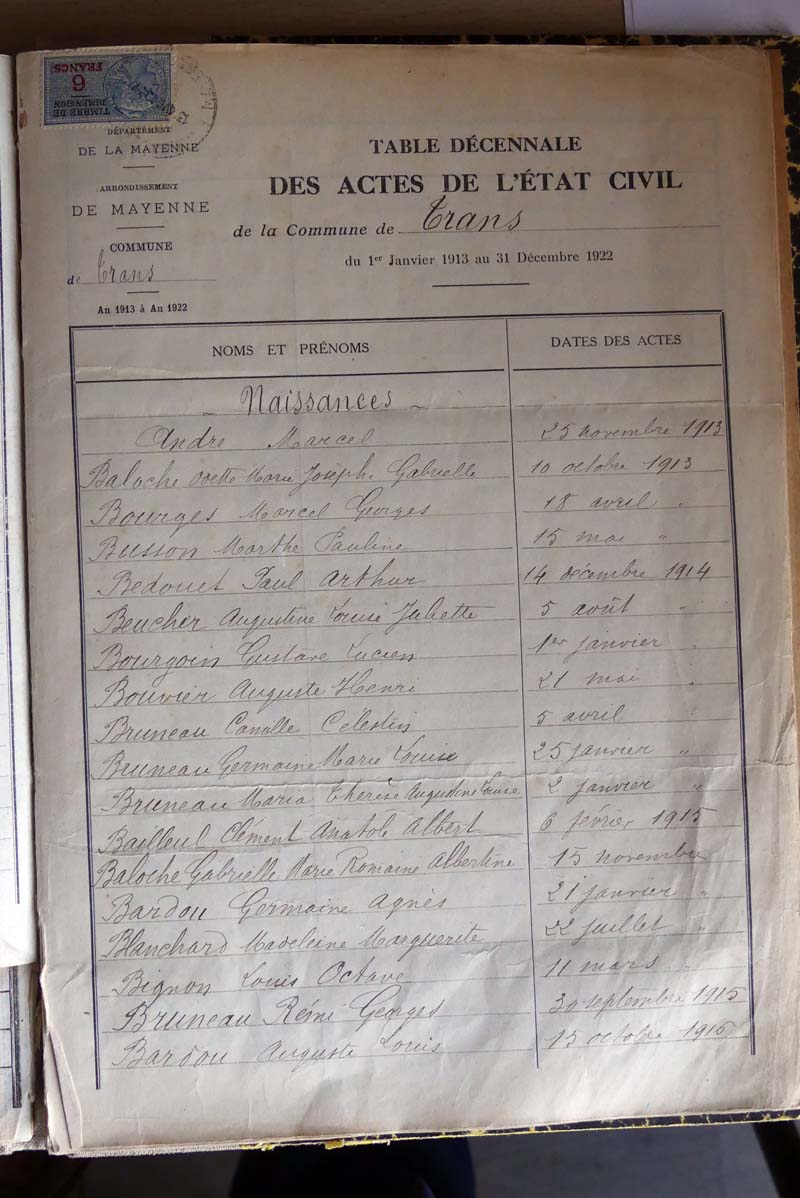 TIMBRE DE DIMENSION
6 FRANCS
DÉPARTEMENT
DE LA MAYENNE
ARRONDISSEMENT
DE MAYENNE
COMMUNE
de Trans
An 1913 à An 1922
TABLE DÉCENNALE
DES ACTES DE L'ÉTAT CIVIL
de la Commune de Trans
du 1er Janvier 1913 au 31 Décembre 1922
NOMS ET PRÉNOMS DATES DES ACTES
- Naissances -
André Marcel 25 novembre 1913
Baloche Odette Marie Josèphe Gabrielle 10 octobre 1913
Bourges Marcel Georges 18 avril "
Busson Marthe Pauline 15 mai "
Bedouet Paul Arthur 14 décembre 1914
Beucher Augustine Louise Juliette 5 août "
Bourgoin Gustave Lucien 1er janvier "
Bouvier Auguste Henri 21 mai "
Bruneau Camille Célestin 5 avril "
Bruneau Germaine Marie Louise 25 janvier "
Bruneau Maria Thérèse Augustine Louise 2 janvier "
Bailleul Clément Anatole Albert 6 février 1915
Baloche Gabrielle Marie Romaine Albertine 15 novembre
Bardou Germaine Agnès 21 janvier "
Blanchard Madeleine Marguerite 22 juillet "
Bignon Louis Octave 11 mars "
Bruneau Rémi Georges 30 septembre 1915
Bardou Auguste Louis 15 octobre 1916